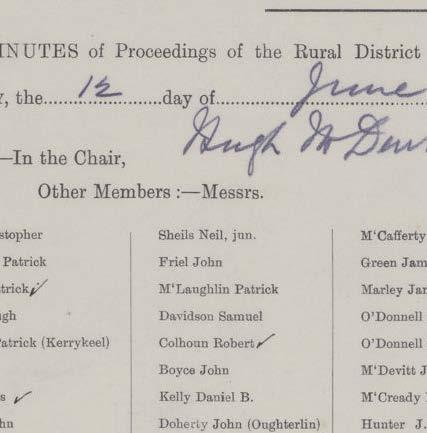 INUTES of Proceedings of the Rural District
, the 12 day of June
Hugh McDev
—In the Chair,
Other Members :—Messrs.
stopher Sheils Neil, jun. M'Cafferty
Patrick Friel John Green Jam
trick ✓ M'Laughlin Patrick Marley Jam
gh Davidson Samuel O'Donnell
atrick (Kerrykeel) Colhoun Robert ✓ O'Donnell
Boyce John M'Devitt J
s ✓ Kelly Daniel B. M'Cready
hn Doherty John (Oughterlin) Hunter J.